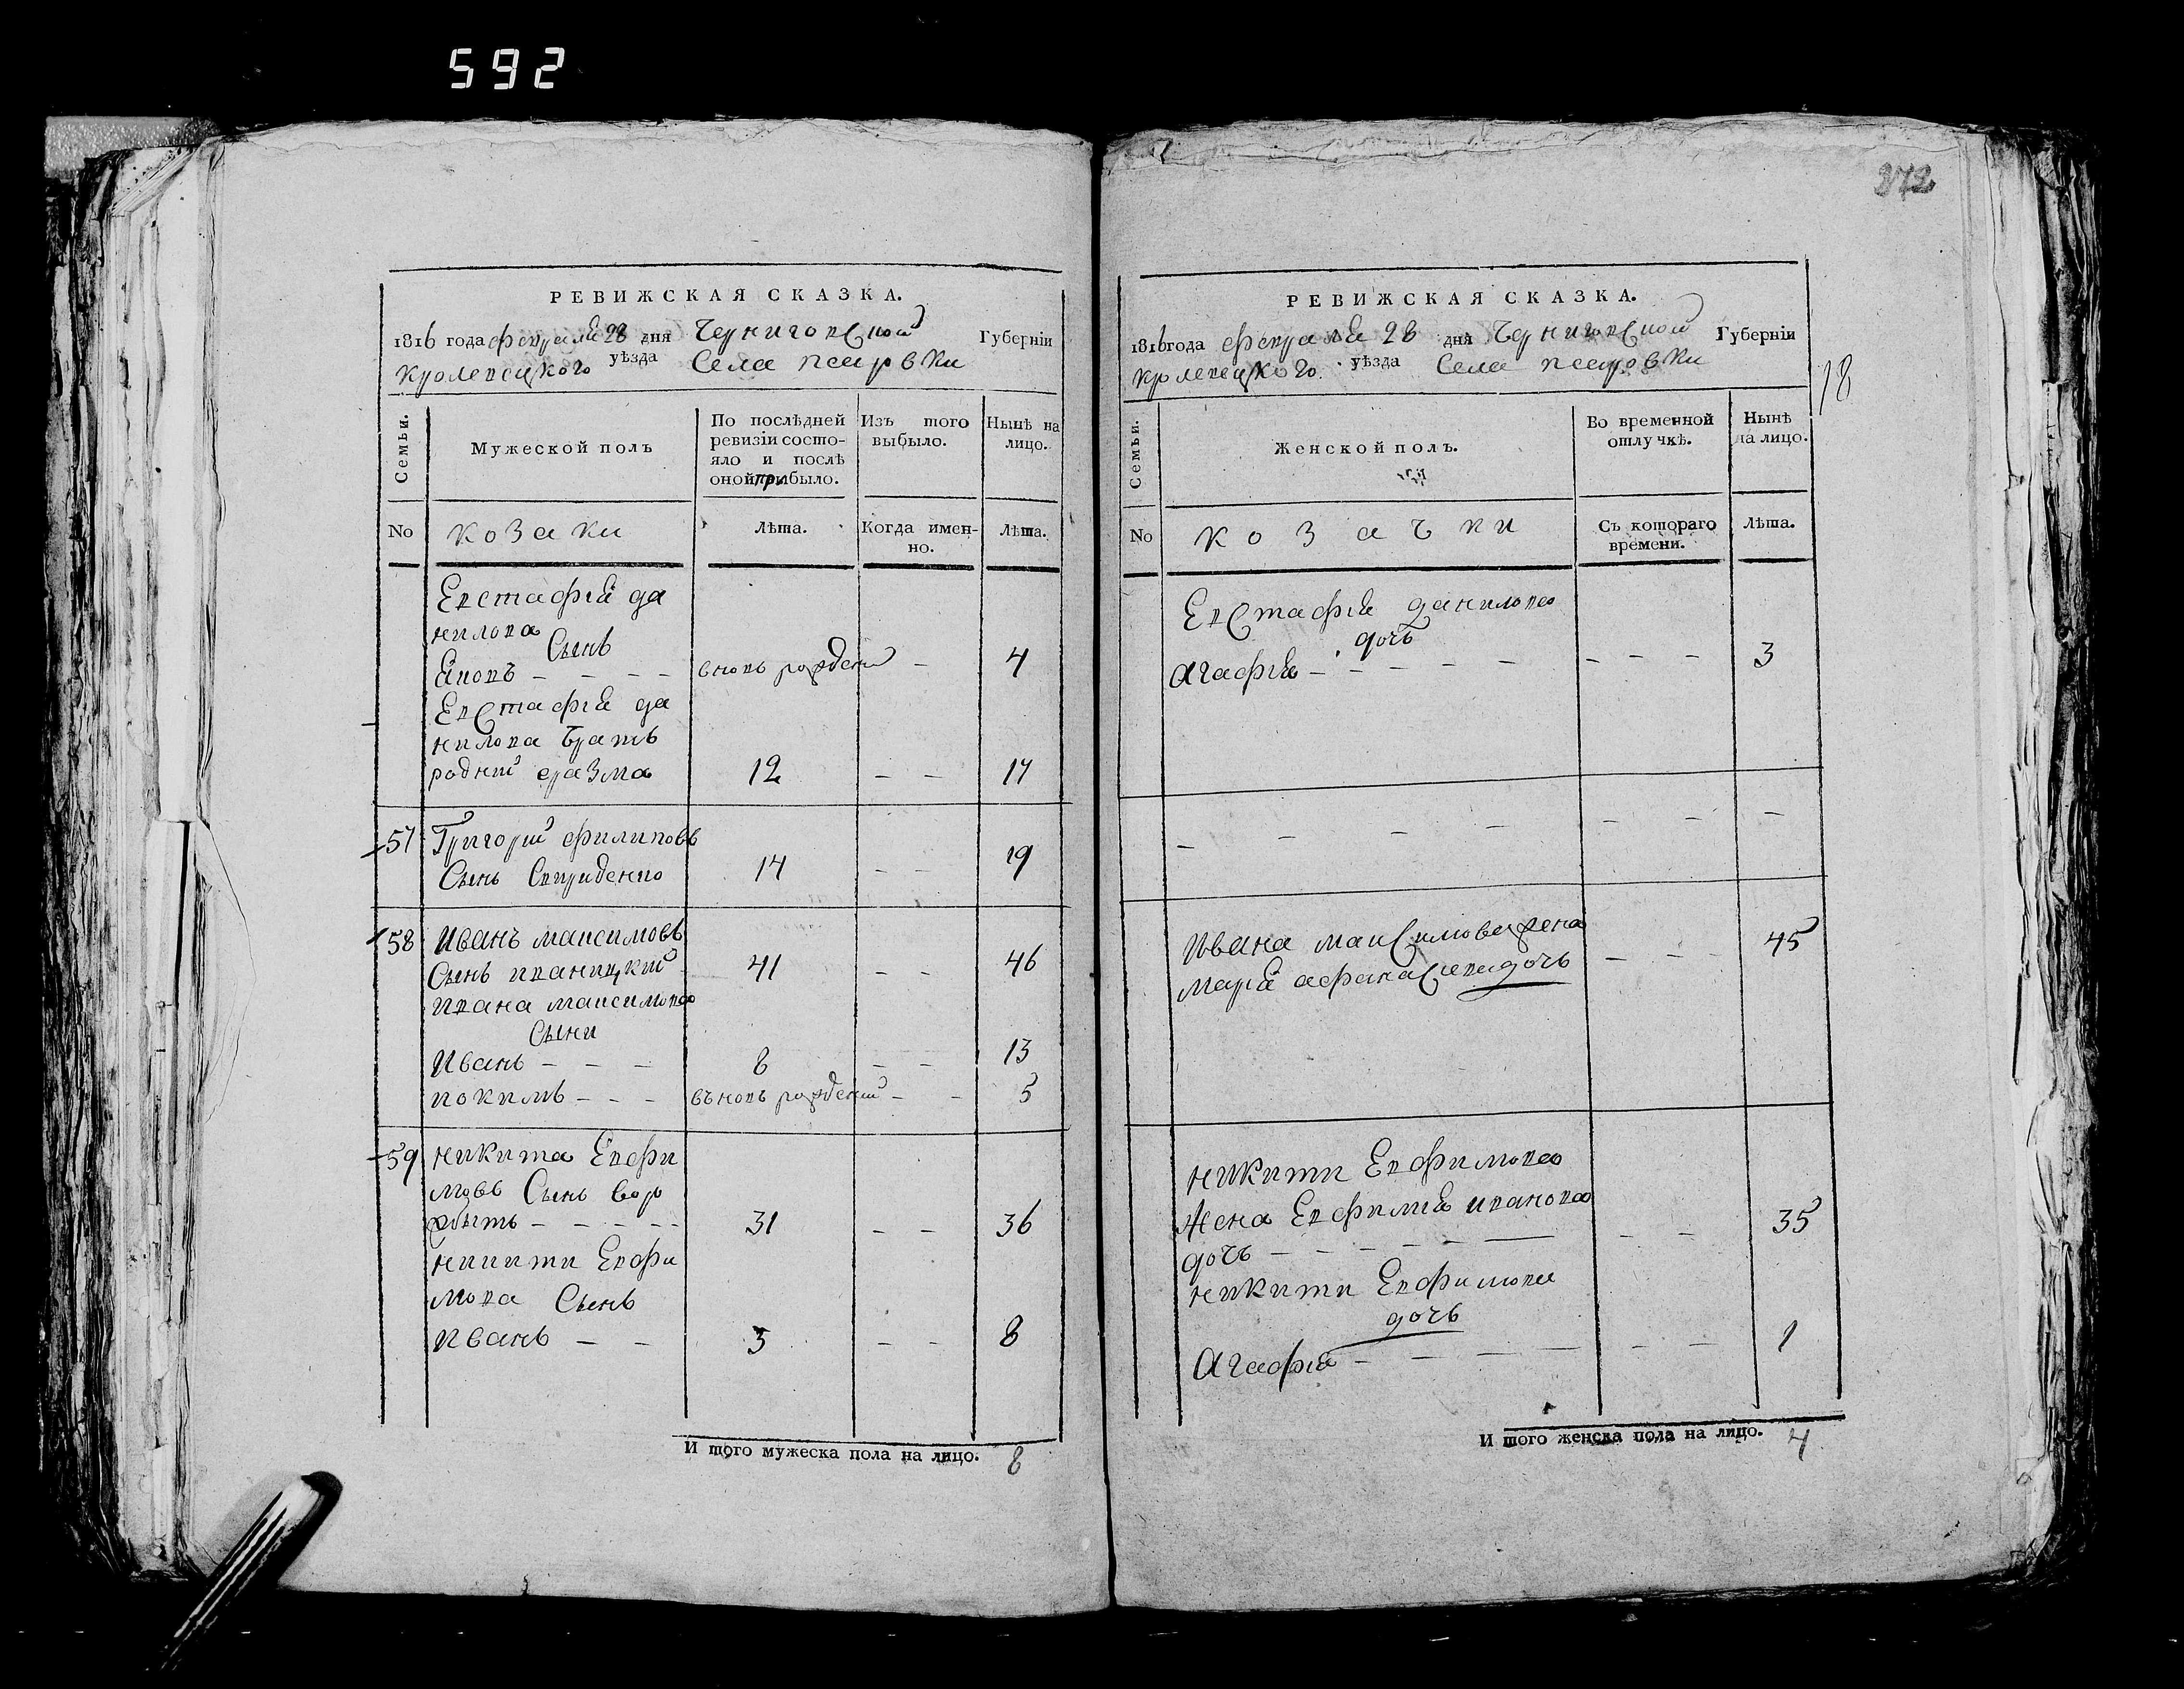 592
РЕВИЖСКАЯ СКАЗКА.
1816 года февраля 28 дня Черниговской Губерніи
Кролевецкого уѣзда Села
Семьи.
Мужеской полъ
По послѣдней
ревизіи состо-
яло и послѣ
оной прибыло.
Изъ того
выбыло.
Нынѣ на
лицо.
No
козаки
Лѣта.
Когда имен-
но.
Лѣта.
Евстафія да
нилова
Сынъ
Яковъ – – – – вновь рожденй – 4
Евстафія да
нилова братъ
роднй 12 – – 17
57 Григорій филиповъ
Сынъ Свириденко 14 – – 19
58 Иванъ максимовъ
Сынъ иваницкій 41 – – 46
ивана максимова
Сыни
Иванъ – – – 8 – – 13
иокимъ – – – въновь рожденй – – 5
59 никита Евфи
мовъ Сынъ вор
– – – – – 31 – – 36
никити Евфи
мова Сынъ
иванъ – – 3 – – 8
И того мужеска пола на лицо. 8
272
РЕВИЖСКАЯ СКАЗКА.
1816 года февраля 28 дня Черниговской Губерніи
Кролевецкого уѣзда Села
18
Семьи.
Женской полъ.
Во временной
отлучкѣ.
Нынѣ
на лицо.
No
козачки
Съ котораго
времени.
Лѣта.
Евстафія данилова
дочь
Агафія – – – – – – – – 3
– – – – – – –
Ивана максимова жена
марія афанасиева дочь – – – 45
никити Евфимова
жена Евфимія иванова
дочь – – – – – – – – 35
никити Евфимова
дочь
Агафія – – – – – – 1
И того женска пола на лицо. 4